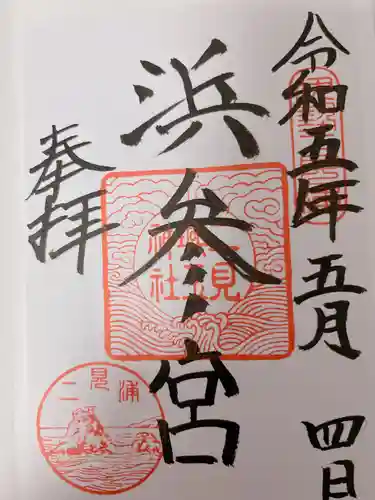 令和五年五月四日
浜参宮
奉拝
二見興玉神社
二見浦